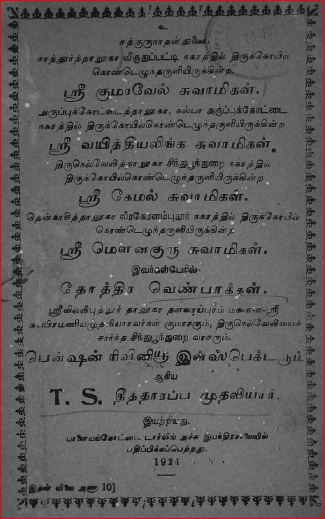 உ
சத்குருநாதன் துணை.
சாத்தூர்த்தாலூகா விருதுப்பட்டி நகரத்தில் திருக்கோயில்
கொண்டெழுந்தருளியிருக்கின்ற
ஸ்ரீ குமரவேல் சுவாமிகள்.
அருப்புக்கோட்டைத்தாலூகா, கஸ்பா அருப்புக்கோட்டை
நகரத்தில் திருக்கோயில்கொண்டெழுந்தருளியிருக்கின்ற
ஸ்ரீ வயித்தியலிங்க சுவாமிகள்.
திருநெல்வேலித்தாலூகா சிந்துபூந்துறை நகரத்தில்
திருக்கோயில்கொண்டெழுந்தருளியிருக்கின்ற
ஸ்ரீ கேமல் சுவாமிகள்.
தென்காசித்தாலூகா வீரகேரளம்புதூர் நகரத்தில் திருக்கோயில்
கொண்டெழுந்தருளியிருக்கின்ற
ஸ்ரீ மௌனகுரு சுவாமிகள்.
இவர்கள்பேரில்
தோத்திர வெண்பாக்கள்.
ஸ்ரீவில்லிபுத்தூர் தாலூகா தளவாய்புரம்
சுப்பிரமணியமுதலியாரவர்கள் குமாரரும், திருநெல்வேலியைச்
சார்ந்த சிந்துபூந்துறை வாசரும்,
பென்ஷன் ரிவினியூ இன்ஸ்பெக்டரும்
ஆகிய
T. S. தீத்தாரப்ப முதலியார்,
இயற்றியது.
பாளையங்கோட்டை டார்லிங் அச்சு இயந்திரசாலையில்
பதிப்பிக்கப்பெற்றது.
1921
இதன் விலை அணா 10]